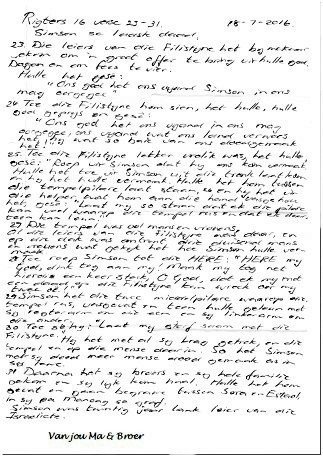 Rigters 16 vers 23-31. 18-7-2016.
Simson se laaste daad.
23. Die leiers van die Filistyne het bymekaar
gekom om 'n groot offer te bring vir hulle god
Dagon en om fees te vier.
Hulle het gesê:
"Ons god het ons vyand Simson in ons
mag oorgegee."
24 Toe die Filistyne hom sien, het hulle, hulle
god geprys en gesê:
"Ons god het ons vyand in ons mag
oorgegee, ons vyand wat ons land verwoes
het, hy wat so baie van ons doodgemaak
het!"
25. Toe die Filistyne lekker vrolik was, het hulle
gesê: "Roep vir Simson dat hy ons kom vermaak
Hulle het toe vir Simson uit die tronk laat kom
en hy het hulle vermaak. Hulle het hom tussen
die tempelpilare laat staan,
het, gesê: "Laat my so staan dat ek die pilare
kan voel waarop die tempel rus en dat ek daar
teen kan leun."
27 Die tempel was vol mans en vrouens
Al die leiers van die Filistyne was daar, en
op die dak was omtrent drie duisend mans
en vrouens wat gekyk het hoe Simson hulle ver-
maak.
28 Toe roep Simson tot die HERE: "HERE my
God, dink tog aan my! Maak my tog net
hierdie een keer sterk, O God, dat ek my met
een slag op die Filistyne kan wreek oor my
twee oë!"
29 Simson het die twee middelpilare waarop die
tempel rus, vasgevat en teen hulle geleun met
sy regterarm om die een en sy linkerarm om
die ander.
30 Toe sê hy: "Laat my sterf saam met die
Filistyne." Hy het met al sy krag getrek, en die
tempel op die mense daar in. So het Simson
met sy dood meer mense dood gemaak as in
sy lewe.
31 Daarna het sy broers en sy hele familie
gekom en sy lyk kom haal. Hulle het hom
gevat en gaan begrawe tussen Sora en Estaol
in sy pa Manoag se graf.
Simson was twintig jaar lank leier van die
Israeliete.
Van jou Ma & Broer